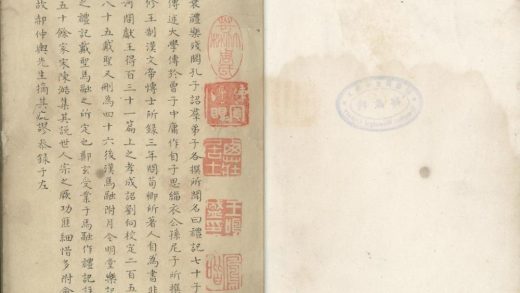 衰禮樂殘闕孔子詔羣弟子各撰所聞名曰禮記七十子
傳述大學傳於曾子中庸作自子思緇衣公孫尼子所撰
修王制漢文帝博士所錄三年問荀卿所著人自為書非
河間獻王得百三十一篇上之孝成詔劉向校定二百五
八十五戴聖又刪為四十六後漢馬融附月令明堂樂記
之禮記戴聖馬融之所定也鄭玄受業于馬融作禮記註
五十餘家宋陳澔集其說世人宗之厥功匪細惜多附會
故郝仲輿先生摘其訛謬叅錄于左
居士
王鳴盛印